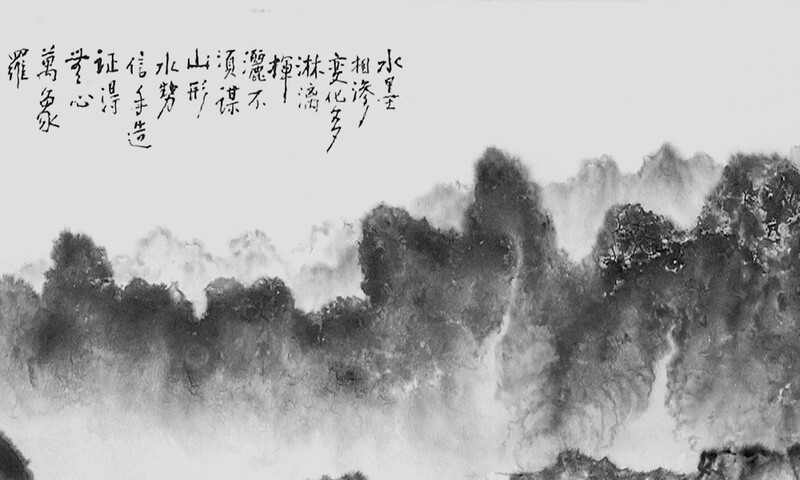 水墨
相滲
變化多
淋漓
揮
灑不
須謀
山形
水勢
信手造
証得
無心
萬象
羅